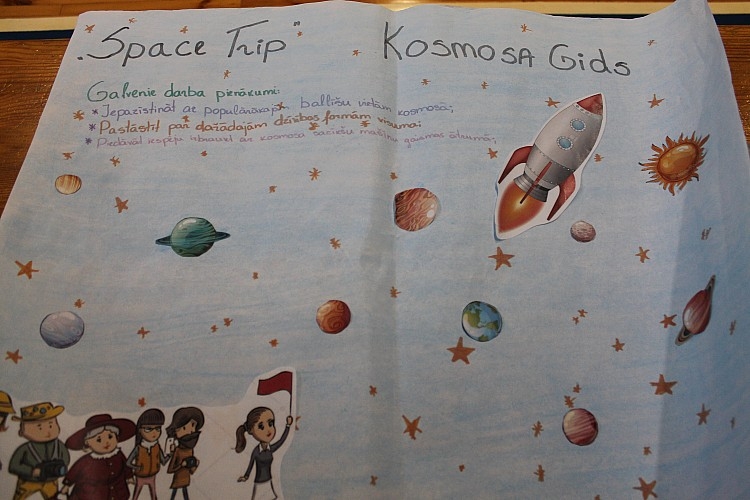 „Space Trip" Kosmosa Gids
Galvenie darba pienākumi:
* Iepazīstināt ar populārākajām ballīšu vietām kosmosā;
* Pastāstīt par dažādajām dzīvības formām visumā;
* Piedāvāt iespēju izbraukt ar kosmosa sacīkšu mašīnu gaismas ātrumā;